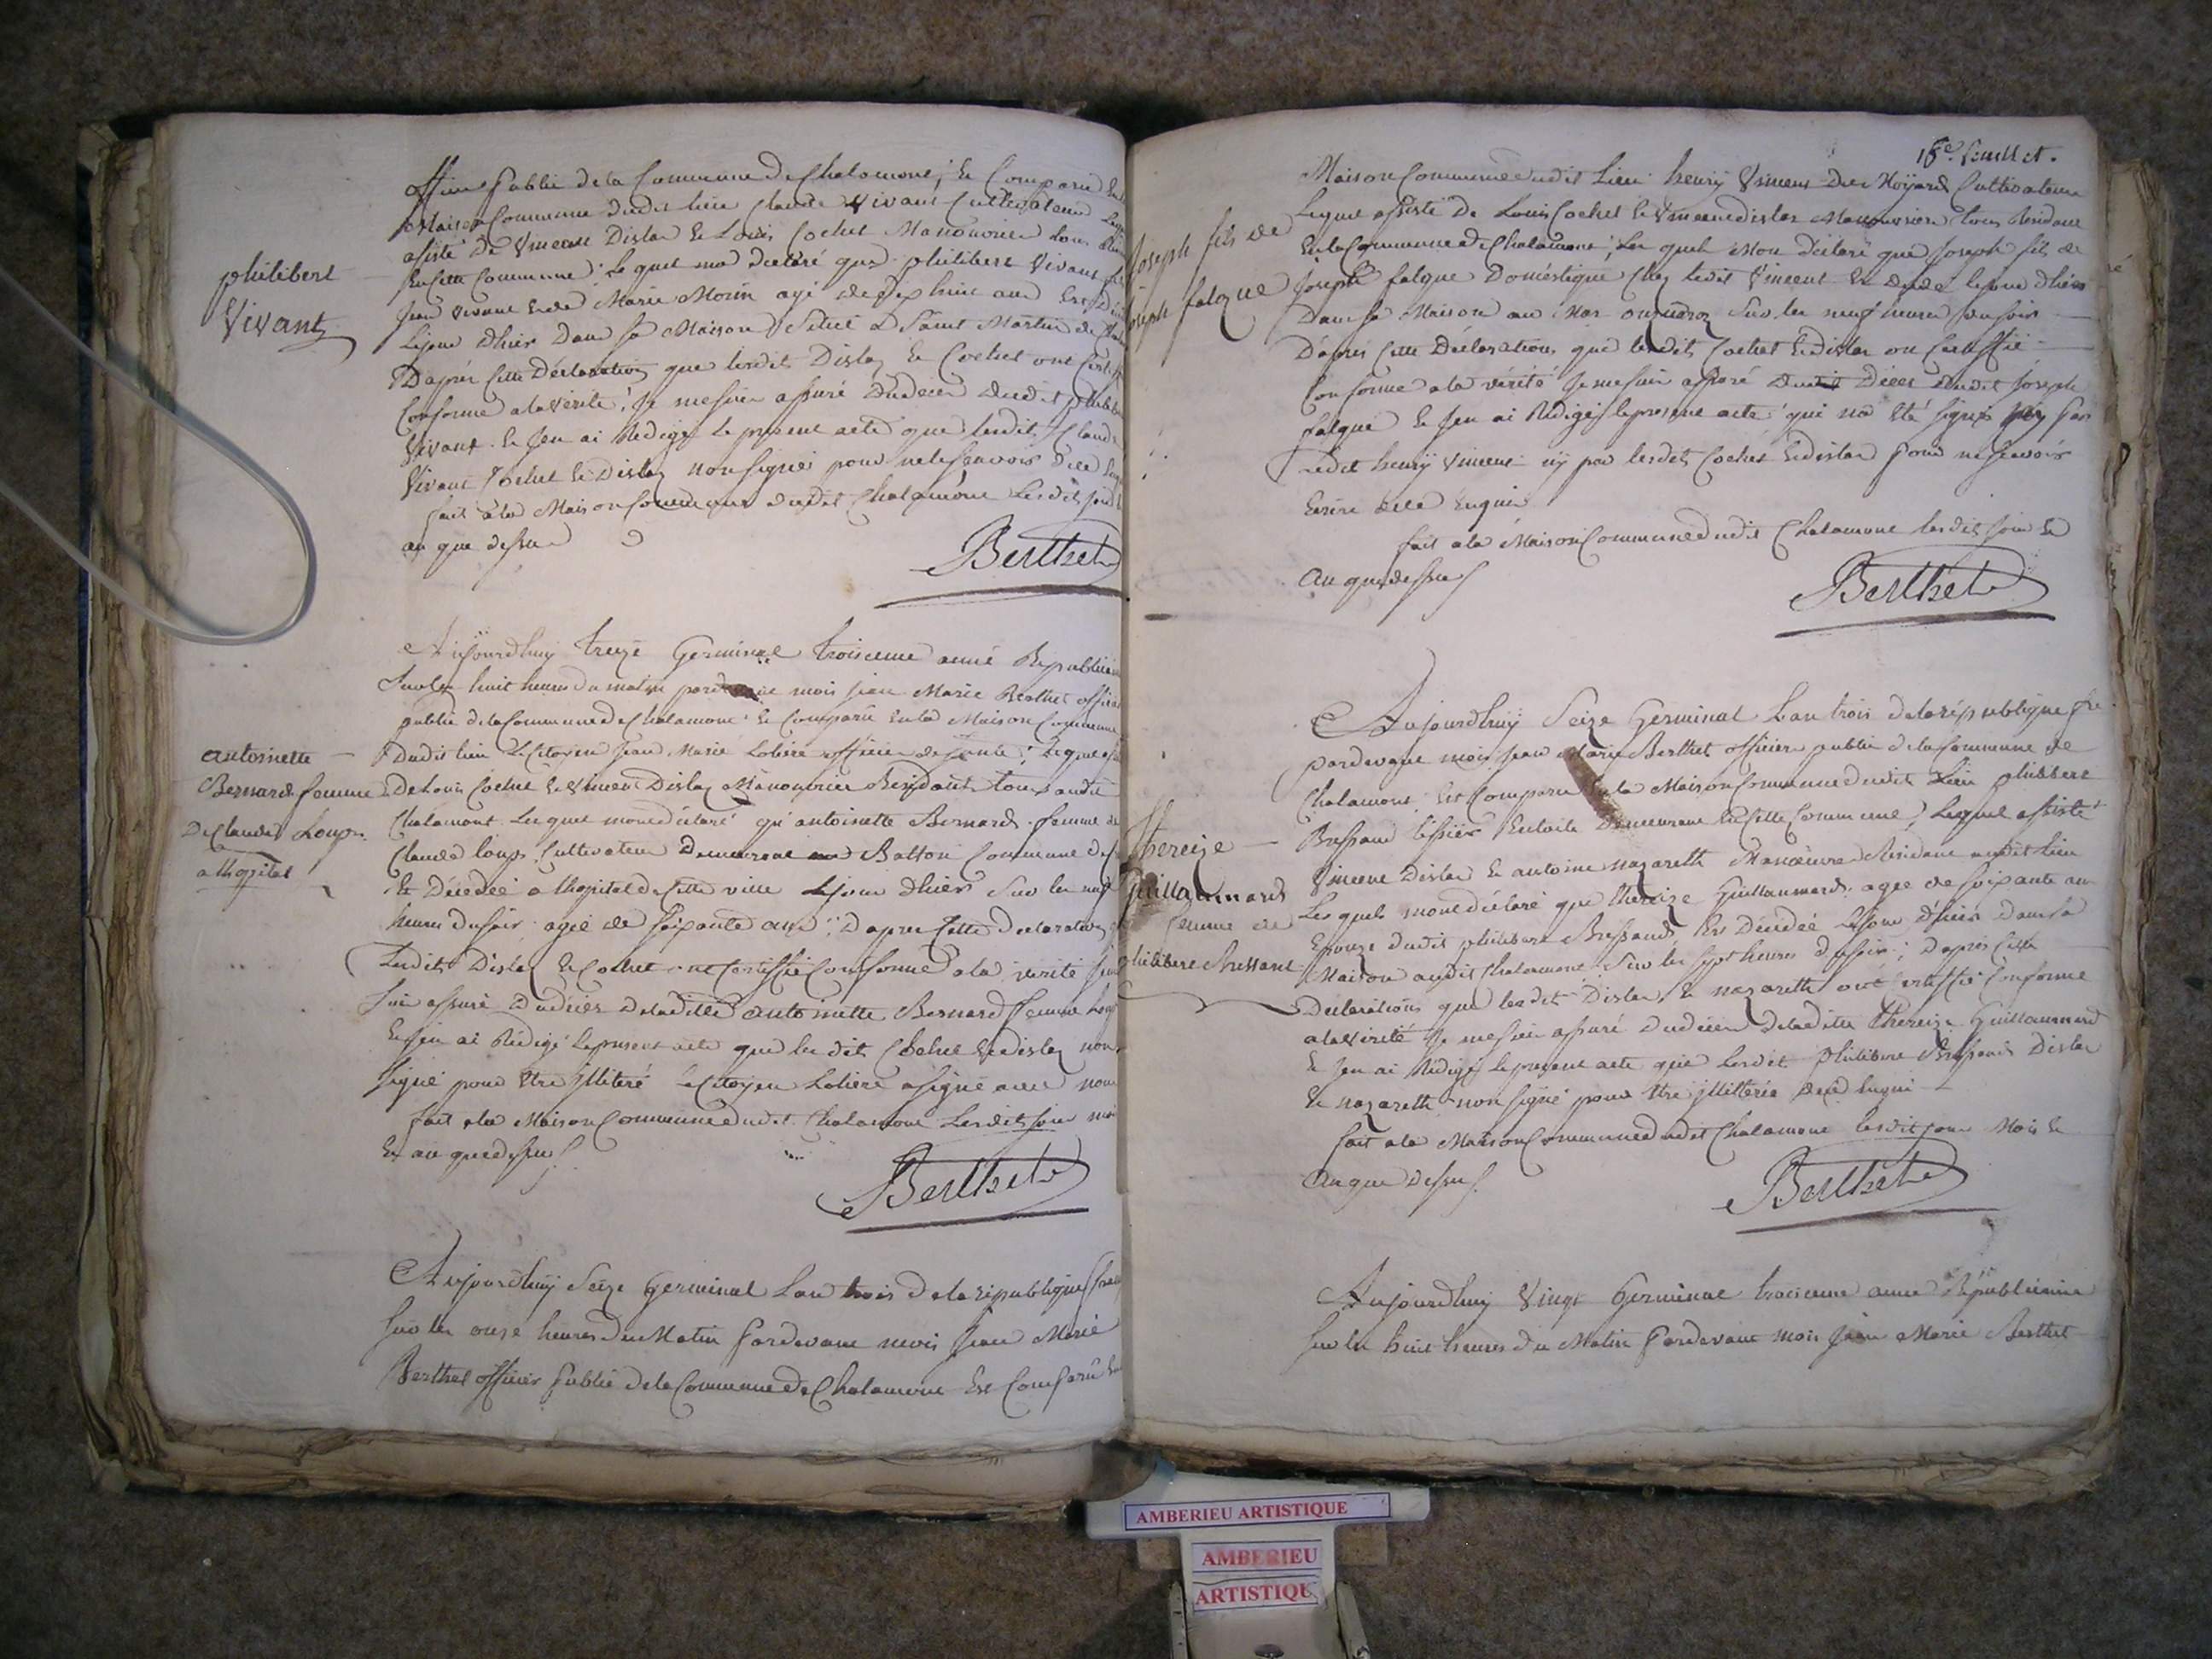 philibert
Vivant
officier public de la Commune de Chalamont, Est Comparu En la
Maison Commune dudit lieu Claude Vivant Cultivateur
assisté de Vincent Dislar Et Louis Cochet Manouvrier tous
En cette Commune Lequel ma declaré que philibert Vivant fils
Jean vivant Et de Marie Morin agé de dix huit ans Est
Le jour dhier Dans sa Maison Situé a Saint Martin de
D'après Cette Déclaration que lesdits Dislar Et Cochet ont
Conforme a la vérité, Je me suis assuré Du décés dudit philibert
Vivant Et J'en ai Rédigé le present acte que lesdits Claude
Vivant Cochet Et Dislar non signés pour ne le sçavoir
fait à la Maison Commune dudit Chalamont Lesdits jour
an que dessus
Berthet
antoinette
Bernard femme
De Claude Loup
a lhopital
Aujourdhuy treize Germinal troisieme année Républicaine
Sur les huit heures du matin mois jean Marie Berthet officier
public de la Commune de Chalamont Est Comparu En la Maison Commune
Dudit lieu Le Citoyen Jean Marie officier de santé, Lequel
De Louis Cochet Et Vincent Dislar Manouvrier Residants tous audit
Chalamont Lesquels mont déclaré qu'antoinette Bernard femme de
Claude loup Cultivateur Demeurant Commune de
Est Décédée a lhopital de Cette ville Le jour dhier Sur les
heures du soir agée de soixante ans, D'après Cette declaration
Lesdits Dislar Et Cochet ont Certiffié Conforme a la vérité
Suis assuré Du décès de laditte antoinette Bernard femme Loup
Et jen ai Rédigé le present acte que les dits Cochet Et dislar non
signé pour être Illiteré Le Citoyen a signé avec nous
fait a la Maison Commune dudit Chalamont Lesdits jour mois
Et an que dessus
Berthet
Aujourdhuy Seize Germinal L'an trois de la république
Sur les onze heures du Matin Pardevant mois Jean Marie
Berthet officier Public de la Commune de Chalamont Est Comparu
18e. feuillet.
Joseph fils de
joseph falque
Maison Commune dudit Lieu henry Vincent Cultivateur
Lequel assisté De Louis Cochet Et Vincent dislar Manouvriers tous Residant
En la Commune de Chalamont, Les quels Mon déclaré que Joseph fils de
Joseph falque Domestique Chez ledit Vincent Le jour dhier
Dans sa Maison au Mas Sur les neuf heures du soir
D'après Cette Déclaration que lesdits Cochet Et dislar on Certiffié
Conforme a la vérité Je me suis assuré Décés dudit Joseph
falque Et Jen ai Rédigé le present acte qui na été signé par
ledit henry Vincent ny par lesdits Cochet Et dislar pour ne sçavoir
Ecrire
fait a la Maison Commune dudit Chalamont lesdits jour Et
An que dessus
Berthet
Thereize
Guillaumard
femme de
philibert Bressant
Aujourdhuy Seize Germinal Lan trois de la république
pardevant mois jean Marie Berthet officier public de la Commune de
Chalamont Est Comparu En la Maison Commune dudit Lieu philibert
Bressand En toile Demeurant En Cette Commune, Lequel assisté
Vincent Dislar Et antoine nazareth Residant audit lieu
Les quels mont déclaré que thereize Guillaumard agée de soixante ans
Epouze dudit philibert Bressand Est Décédée Le jour d'hier dans sa
Maison audit Chalamont Sur les sept heures du soir; D'après Cette
Déclaration que lesdits Dislar Et nazareth ont certiffié Conforme
a la vérité Je me suis assuré du décès de laditte thereize Guillaumard
Et Jen ai Rédigé le present acte que lesdit philibert Bressand Dislar
Et nazareth non signé pour être illitterés
fait a la Maison Commune dudit Chalamont lesdit jour Mois Et
An que Dessus
Berthet
Aujourdhuy Vingt Germinal troisieme année Républicaine
Sur les huit heures du Matin Pardevant mois jean Marie Berthet
AMBERIEU ARTISTIQUE
AMBERIEU
ARTISTIQU